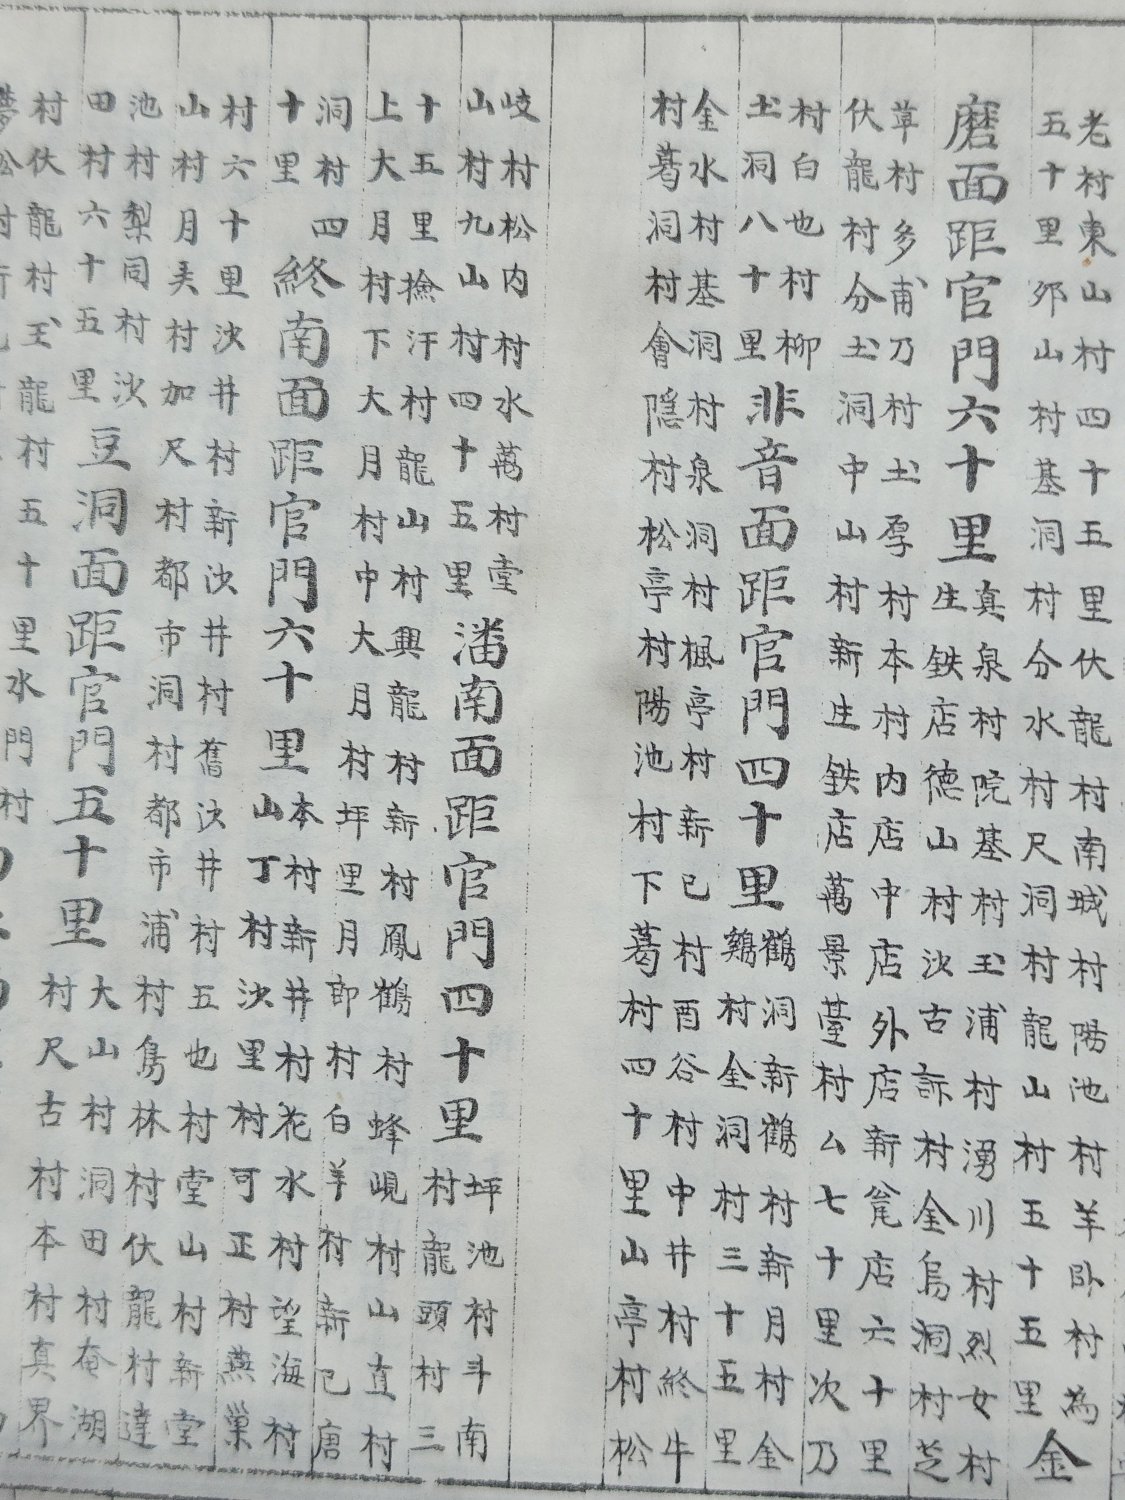 老村東山村四十五里伏龍村南城村陽池村羊卧村為
五十里邜山村基洞村分水村尺洞村龍山村五十五里金
磨面距官門六十里
真泉村院基村玉浦村湧川村烈女村
生鉄店德山村沙古訴村金烏洞村芝
草村多甫乃村土厚村本村內店中店外店新瓮店六十里
伏龍村分土洞中山村新生鉄店萬景䑓村厶七十里次乃
村白也村柳
土洞八十里
非音面距官門四十里
鶴洞新鶴村新月村金
鷄村金洞村三十五里
金水村基洞村泉洞村楓亭村新已村酉谷村中井村終牛
村葛洞村會隱村松亭村陽池村下葛村四十里山亭村松
岐村松內村水萬村堂
山村九山村四十五里
潘南面距官門四十里
坪池村斗南
村龍頭村三
十五里撿汗村龍山村興龍村新村鳳鶴村蜂峴村山直村
上大月村下大月村中大月村坪里月郎村白羊村新已唐
洞村四
十里
終南面距官門六十里
本村新井村花水村望海村
山丁村沙里村可正村燕巢
村六十里汝井村新汝井村奮汝井村五也村堂山村新堂
山村月美村加尺村都市洞村都市浦村鳥林村伏龍村達
池村梨同村沙
田村六十五里
豆洞面距官門五十里
大山村洞田村奄湖
村尺古村本村真界
村伏龍村玉龍村五十里水門村